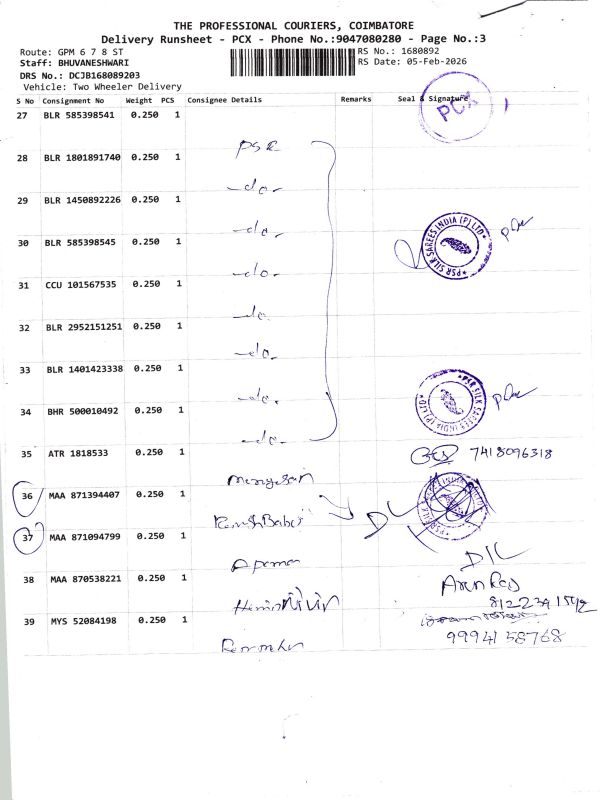 THE PROFESSIONAL COURIERS, COIMBATORE
Delivery Runsheet - PCX - Phone No.:9047080280 - Page No.:3
Route: GPM 6 7 8 ST
RS No.: 1680892
Staff: BHUVANESHWARI
RS Date: 05-Feb-2026
DRS No.: DCJB168089203
Vehicle: Two Wheeler Delivery
S No Consignment No Weight PCS Consignee Details Remarks Seal & Signature
PCX
27 BLR 585398541 0.250 1
PSR
28 BLR 1801891740 0.250 1
-do-
29 BLR 1450892226 0.250 1
-do-
30 BLR 585398545 0.250 1
PSR SILK SAREES INDIA (P) LTD
-do-
31 CCU 101567535 0.250 1
-do-
32 BLR 2952151251 0.250 1
-do-
33 BLR 1401423338 0.250 1
-do-
PSR SILK SAREES INDIA (P) LTD
34 BHR 500010492 0.250 1
-do-
35 ATR 1818533 0.250 1
7418096318
36 MAA 871394407 0.250 1
DL
37 MAA 871094799 0.250 1
D/L
38 MAA 870538221 0.250 1
Arun Raj
39 MYS 52084198 0.250 1
9994158768